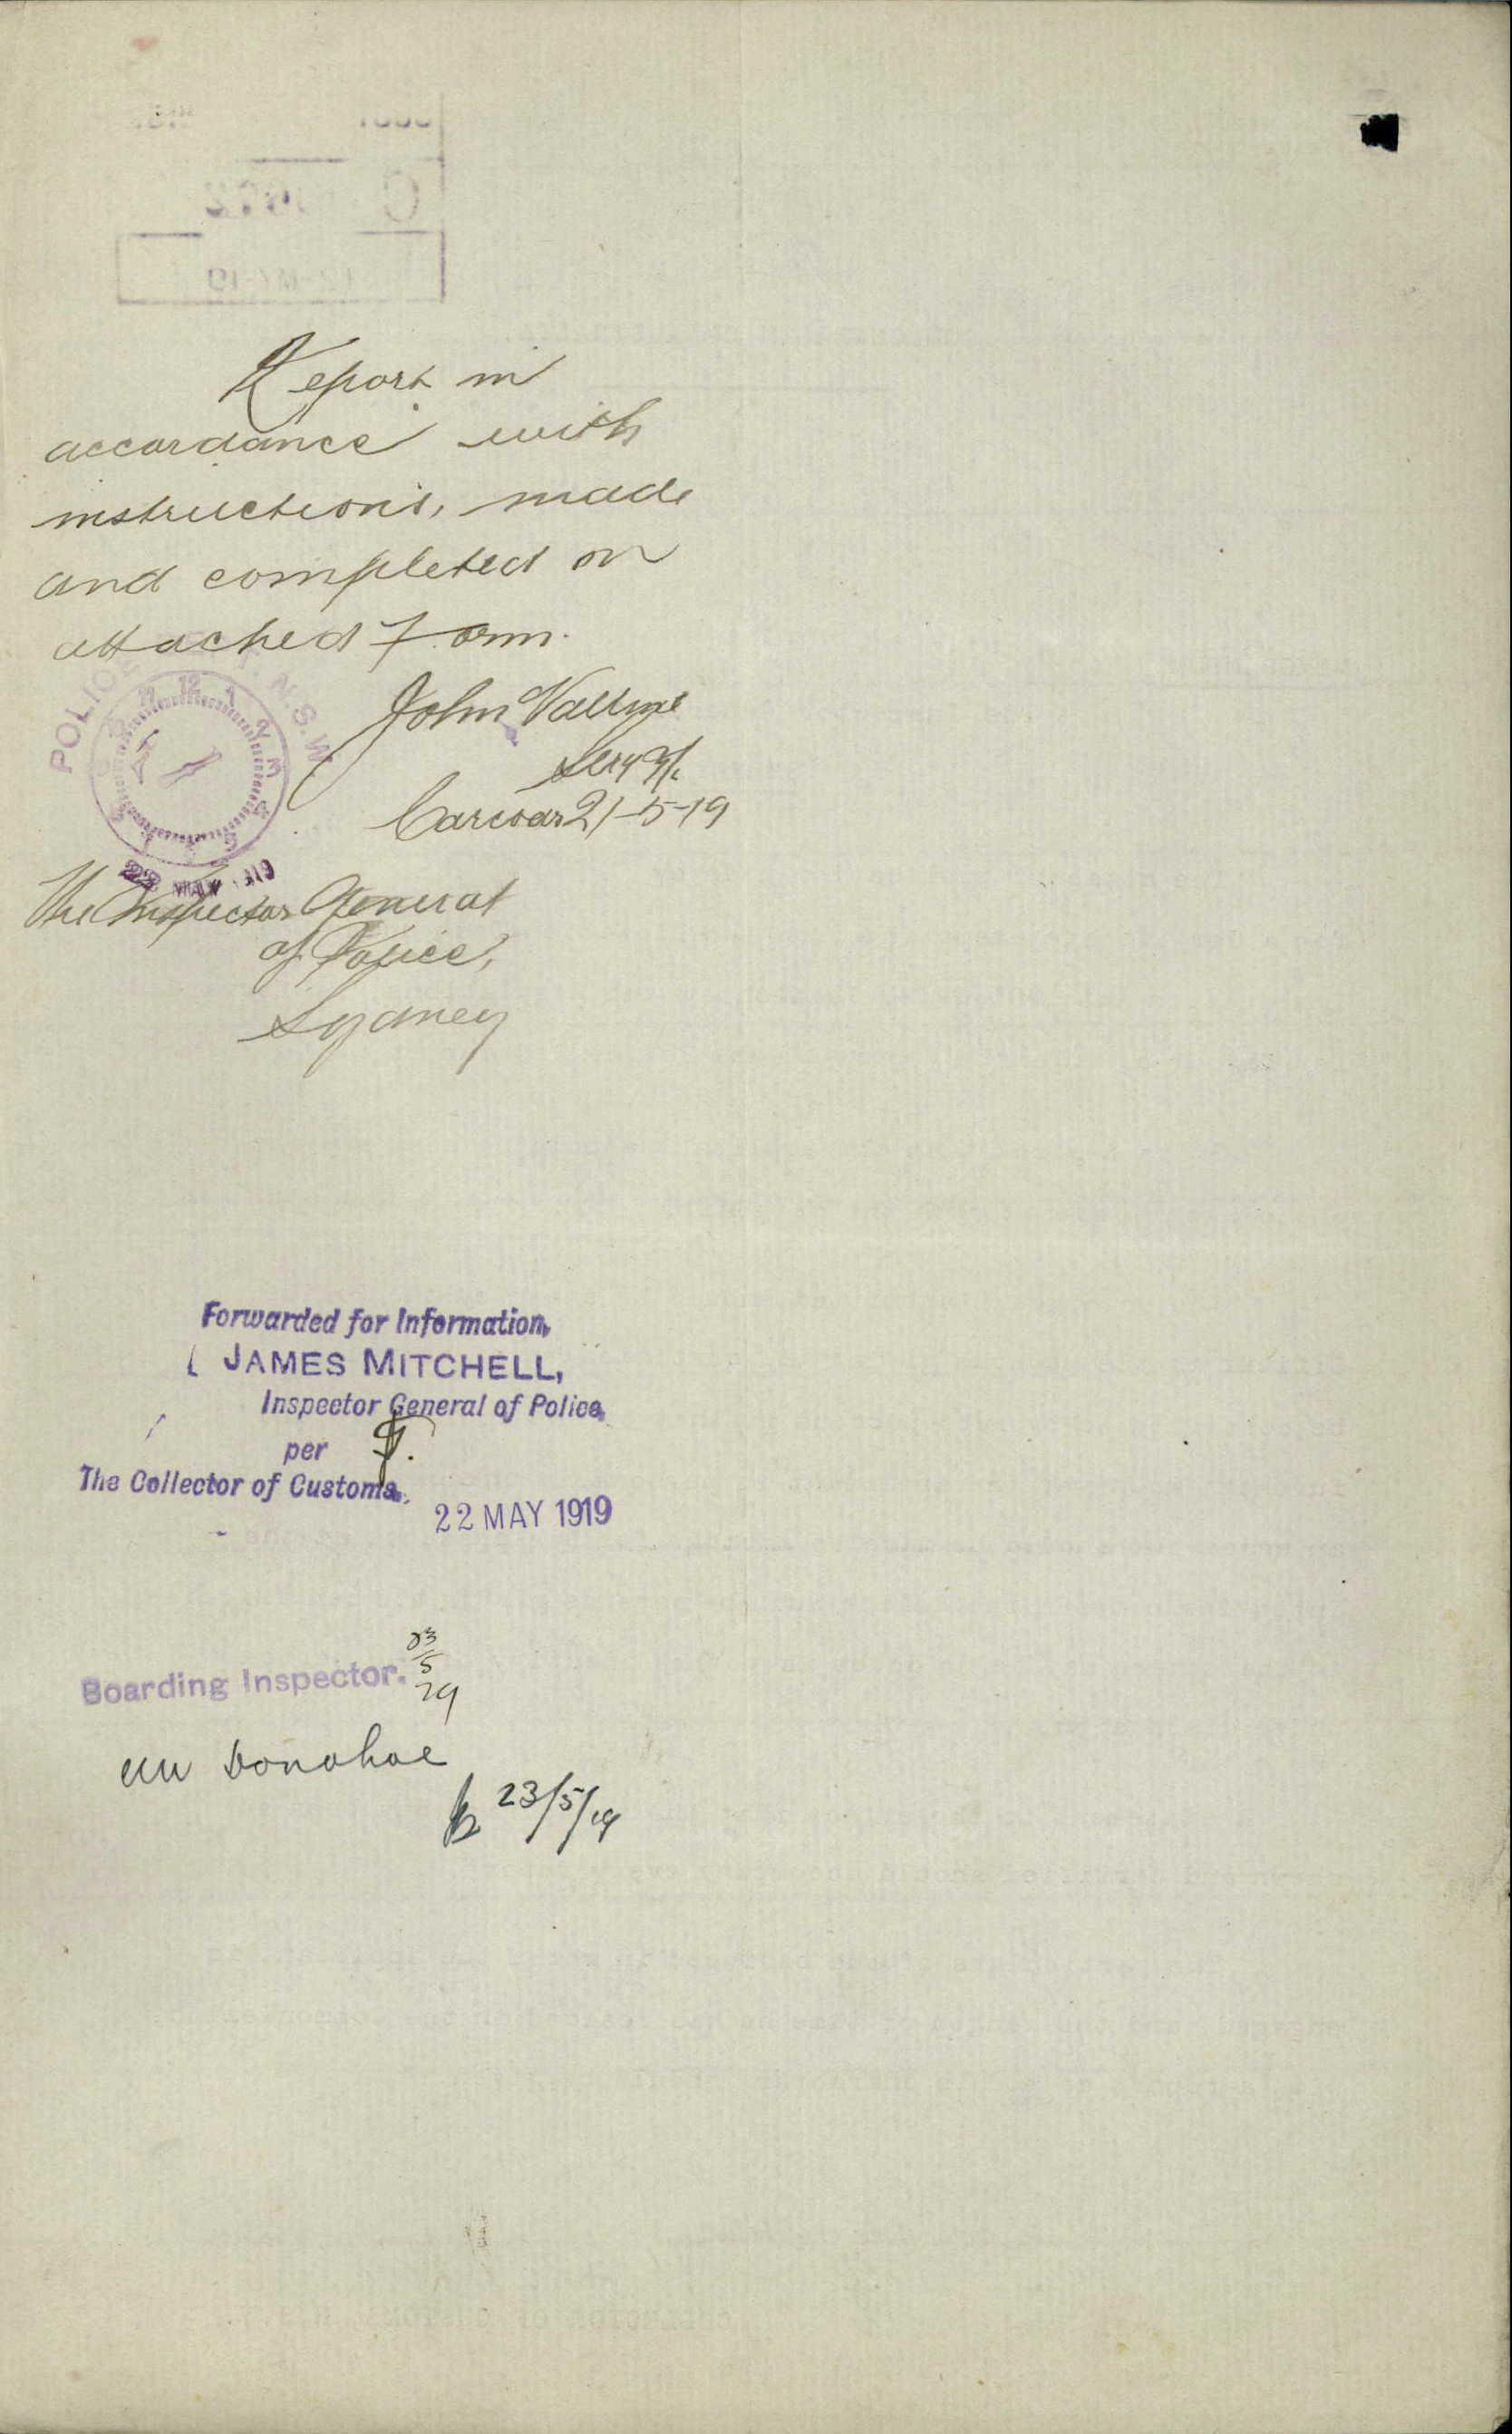 Report in
accordance with
instructions, made
and completed on
attached Form.
POLICE N.S.W.
12 1 2 3
John
Carcoar 21-5-19
22 MAY 1919
The Inspector General
of Police,
Sydney
Forwarded for Information,
JAMES MITCHELL,
Inspector General of Police,
per
The Collector of Customs.
22 MAY 1919
Boarding Inspector. 23/5/19
Mr Donohoe
23/5/19